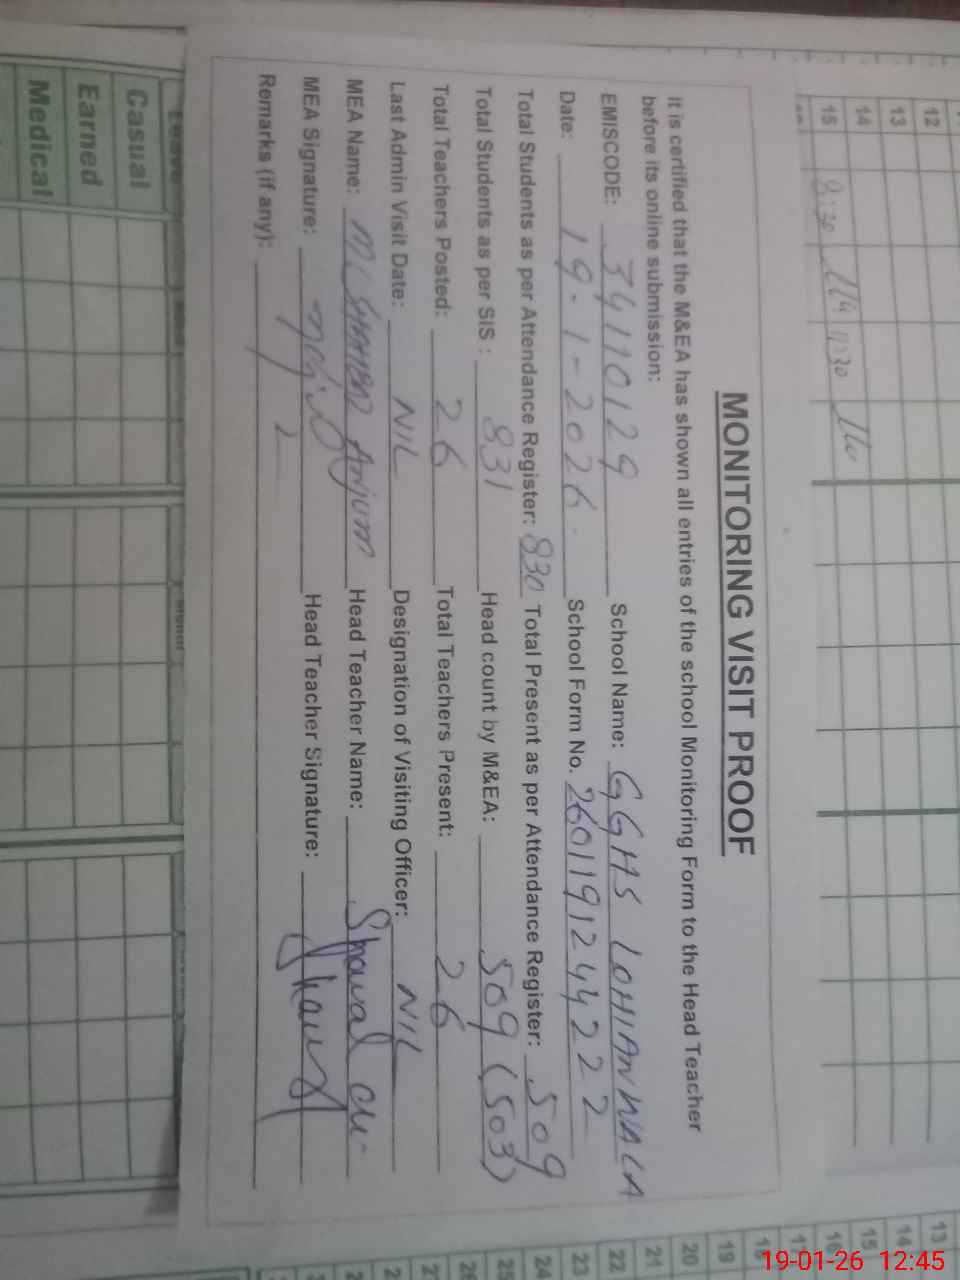 MONITORING VISIT PROOF
It is certified that the M&EA has shown all entries of the school Monitoring Form to the Head Teacher
before its online submission:
EMISCODE: 34110129 School Name: GGHS LOHIANWALA
Date: 19-1-2026. School Form No. 2601191244222
Total Students as per Attendance Register: 830 Total Present as per Attendance Register: 509
Total Students as per SIS : 831 Head count by M&EA: 509 (503)
Total Teachers Posted: 26 Total Teachers Present: 26
Last Admin Visit Date: NIL Designation of Visiting Officer: NIL
MEA Name: Anjum Head Teacher Name:
MEA Signature: Head Teacher Signature:
Remarks (if any):
Casual
Earned
Medical
12
13
14
15 8:30 11:30
13
14
15
16
17
18
19
20
21
22
23
24
25
26
19-01-26 12:45